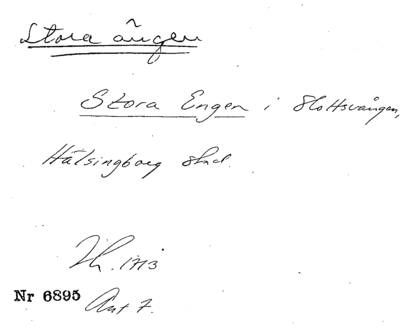 Stora ängen
Stora Engen i Slottsvången,
Hälsingborg stad.
1713
Nr 6895 Ant 7.